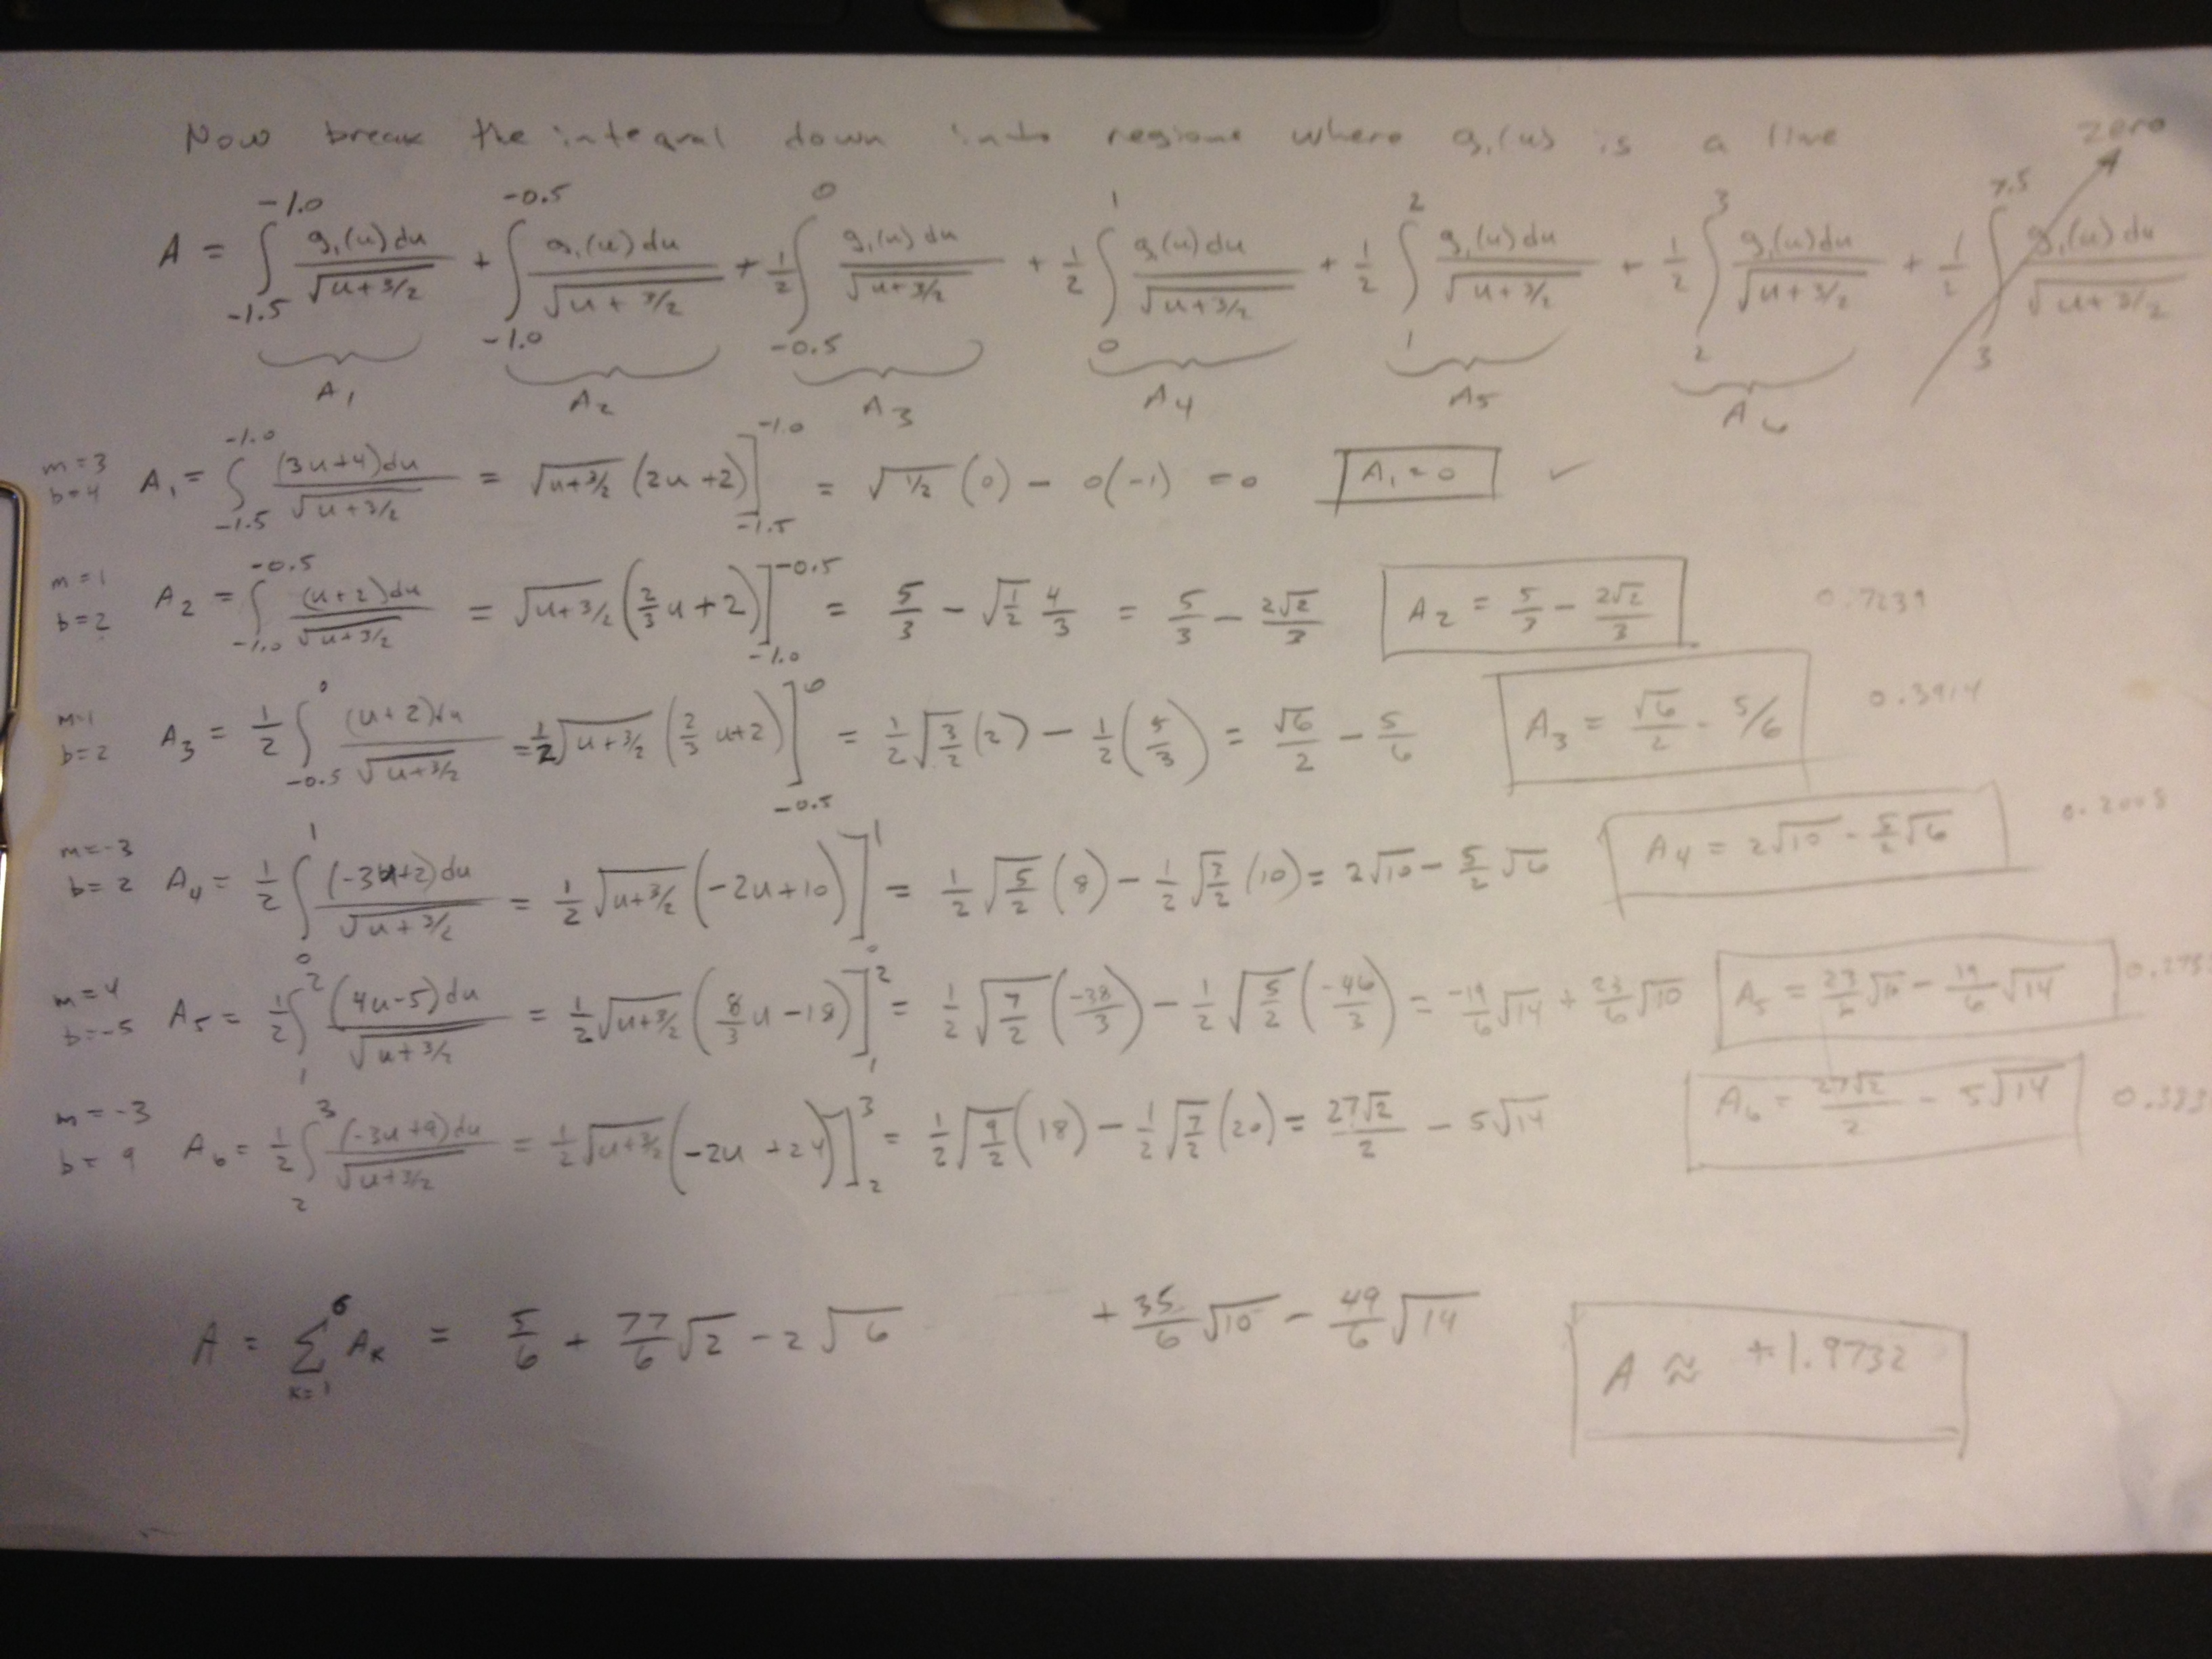 Now break the integral down into regions where g₁(u) is a line
A = ∫_{-1.5}^{-1.0} g₁(u)du/√(u+3/2) + ∫_{-1.0}^{-0.5} g₁(u)du/√(u+3/2) + 1/2 ∫_{-0.5}^{0} g₁(u)du/√(u+3/2) + 1/2 ∫_{0}^{1} g₁(u)du/√(u+3/2) + 1/2 ∫_{1}^{2} g₁(u)du/√(u+3/2) + 1/2 ∫_{2}^{3} g₁(u)du/√(u+3/2) + 1/2 ∫_{3}^{7.5} g₁(u)du/√(u+3/2) zero
A₁ A₂ A₃ A₄ A₅ A₆
m=3 b=4 A₁ = ∫_{-1.5}^{-1.0} (3u+4)du/√(u+3/2) = √(u+3/2) (2u+2)]_{-1.5}^{-1.0} = √(1/2) (0) - 0(-1) = 0 A₁=0 ✓
m=1 b=2 A₂ = ∫_{-1.0}^{-0.5} (u+2)du/√(u+3/2) = √(u+3/2) (2/3 u+2)]_{-1.0}^{-0.5} = 5/3 - √(1/2) 4/3 = 5/3 - 2√2/3 A₂ = 5/3 - 2√2/3 0.7239
m=1 b=2 A₃ = 1/2 ∫_{-0.5}^{0} (u+2)du/√(u+3/2) = 1/2 √(u+3/2) (2/3 u+2)]_{-0.5}^{0} = 1/2 √(3/2) (2) - 1/2 (5/3) = √6/2 - 5/6 A₃ = √6/2 - 5/6 0.3914
m=-3 b=2 A₄ = 1/2 ∫_{0}^{1} (-3u+2)du/√(u+3/2) = 1/2 √(u+3/2) (-2u+10)]_{0}^{1} = 1/2 √(5/2) (8) - 1/2 √(3/2) (10) = 2√10 - 5/2 √6 A₄ = 2√10 - 5/2 √6 0.2008
m=4 b=-5 A₅ = 1/2 ∫_{1}^{2} (4u-5)du/√(u+3/2) = 1/2 √(u+3/2) (8/3 u-18)]_{1}^{2} = 1/2 √(7/2) (-38/3) - 1/2 √(5/2) (-46/3) = -19/6 √14 + 23/6 √10 A₅ = 23/6 √10 - 19/6 √14
m=-3 b=9 A₆ = 1/2 ∫_{2}^{3} (-3u+9)du/√(u+3/2) = 1/2 √(u+3/2) (-2u+24)]_{2}^{3} = 1/2 √(9/2) (18) - 1/2 √(7/2) (20) = 27√2/2 - 5√14 A₆ = 27√2/2 - 5√14
A = ∑_{k=1}^{6} Aₖ = 5/6 + 77/6 √2 - 2√6 + 35/6 √10 - 49/6 √14 A ≈ +1.9732